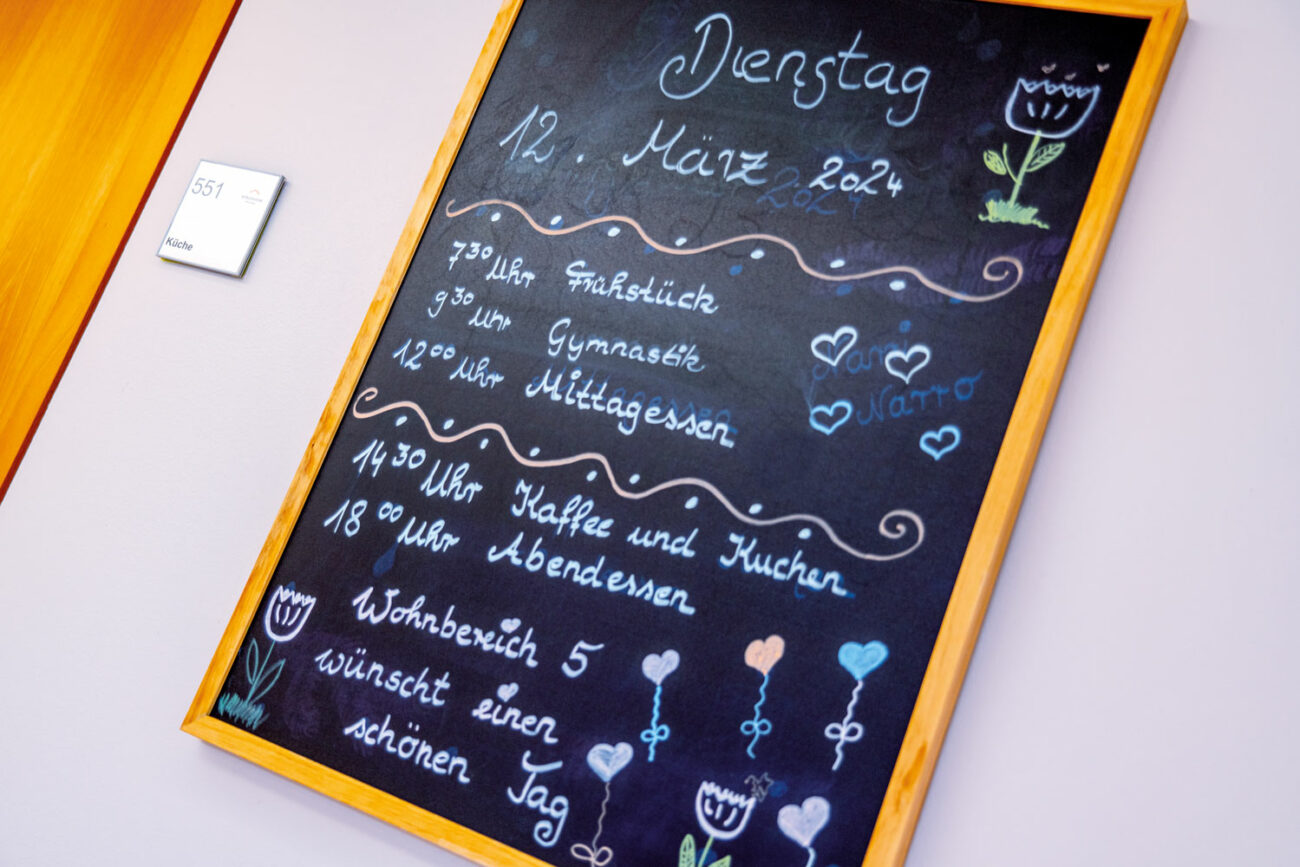 551
Küche
Dienstag
12. März 2024
7³⁰ Uhr Frühstück
9³⁰ Uhr Gymnastik
12⁰⁰ Uhr Mittagessen
Narri
Narro
14³⁰ Uhr Kaffee und Kuchen
18⁰⁰ Uhr Abendessen
Wohnbereich 5
wünscht einen
schönen Tag